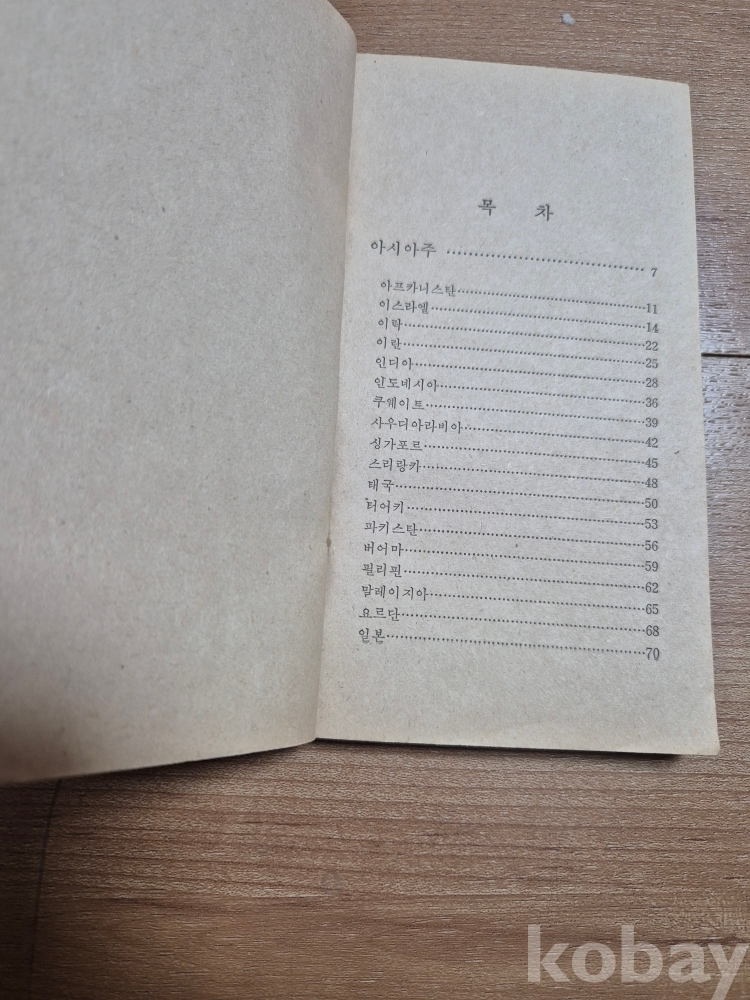 목 차
아시아주 ........................ 7
아프카니스탄........................11
이스라엘........................14
이락........................22
이란........................25
인디아........................28
인도네시아........................36
쿠웨이트........................39
사우디아라비아........................42
싱가포르........................45
스리랑카........................48
태국........................50
터어키........................53
파키스탄........................56
버어마........................59
필리핀........................62
말레이지아........................65
요르단........................68
일본........................70
kobay